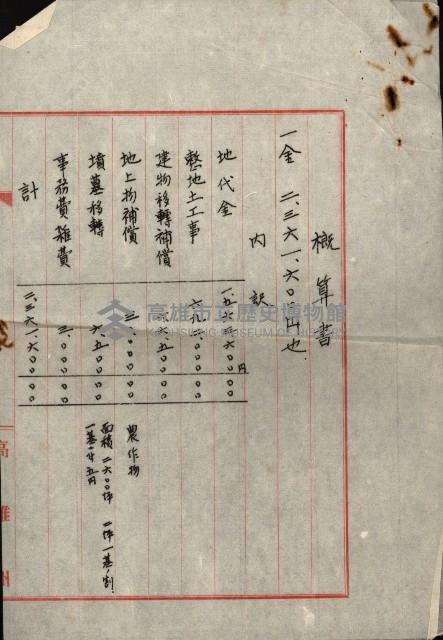 概算書
一金 二、三六一、六〇〇円也
内訳
地代金 一、五六三、六〇〇円〇〇
整地土工事 六九二、〇〇〇〇〇
建物移轉補償 六六、五〇〇〇〇
地上物補償 三〇、〇〇〇〇〇 農作物
墳墓移轉 六、五〇〇〇〇 面積 二六〇〇坪 二坪一基ノ割
一基ニ付五円
事務費雜費 三、〇〇〇〇〇
計 二、三六一、六〇〇〇〇
高雄州
高雄市立歷史博物館
KAOHSIUNG MUSEUM OF HISTORY